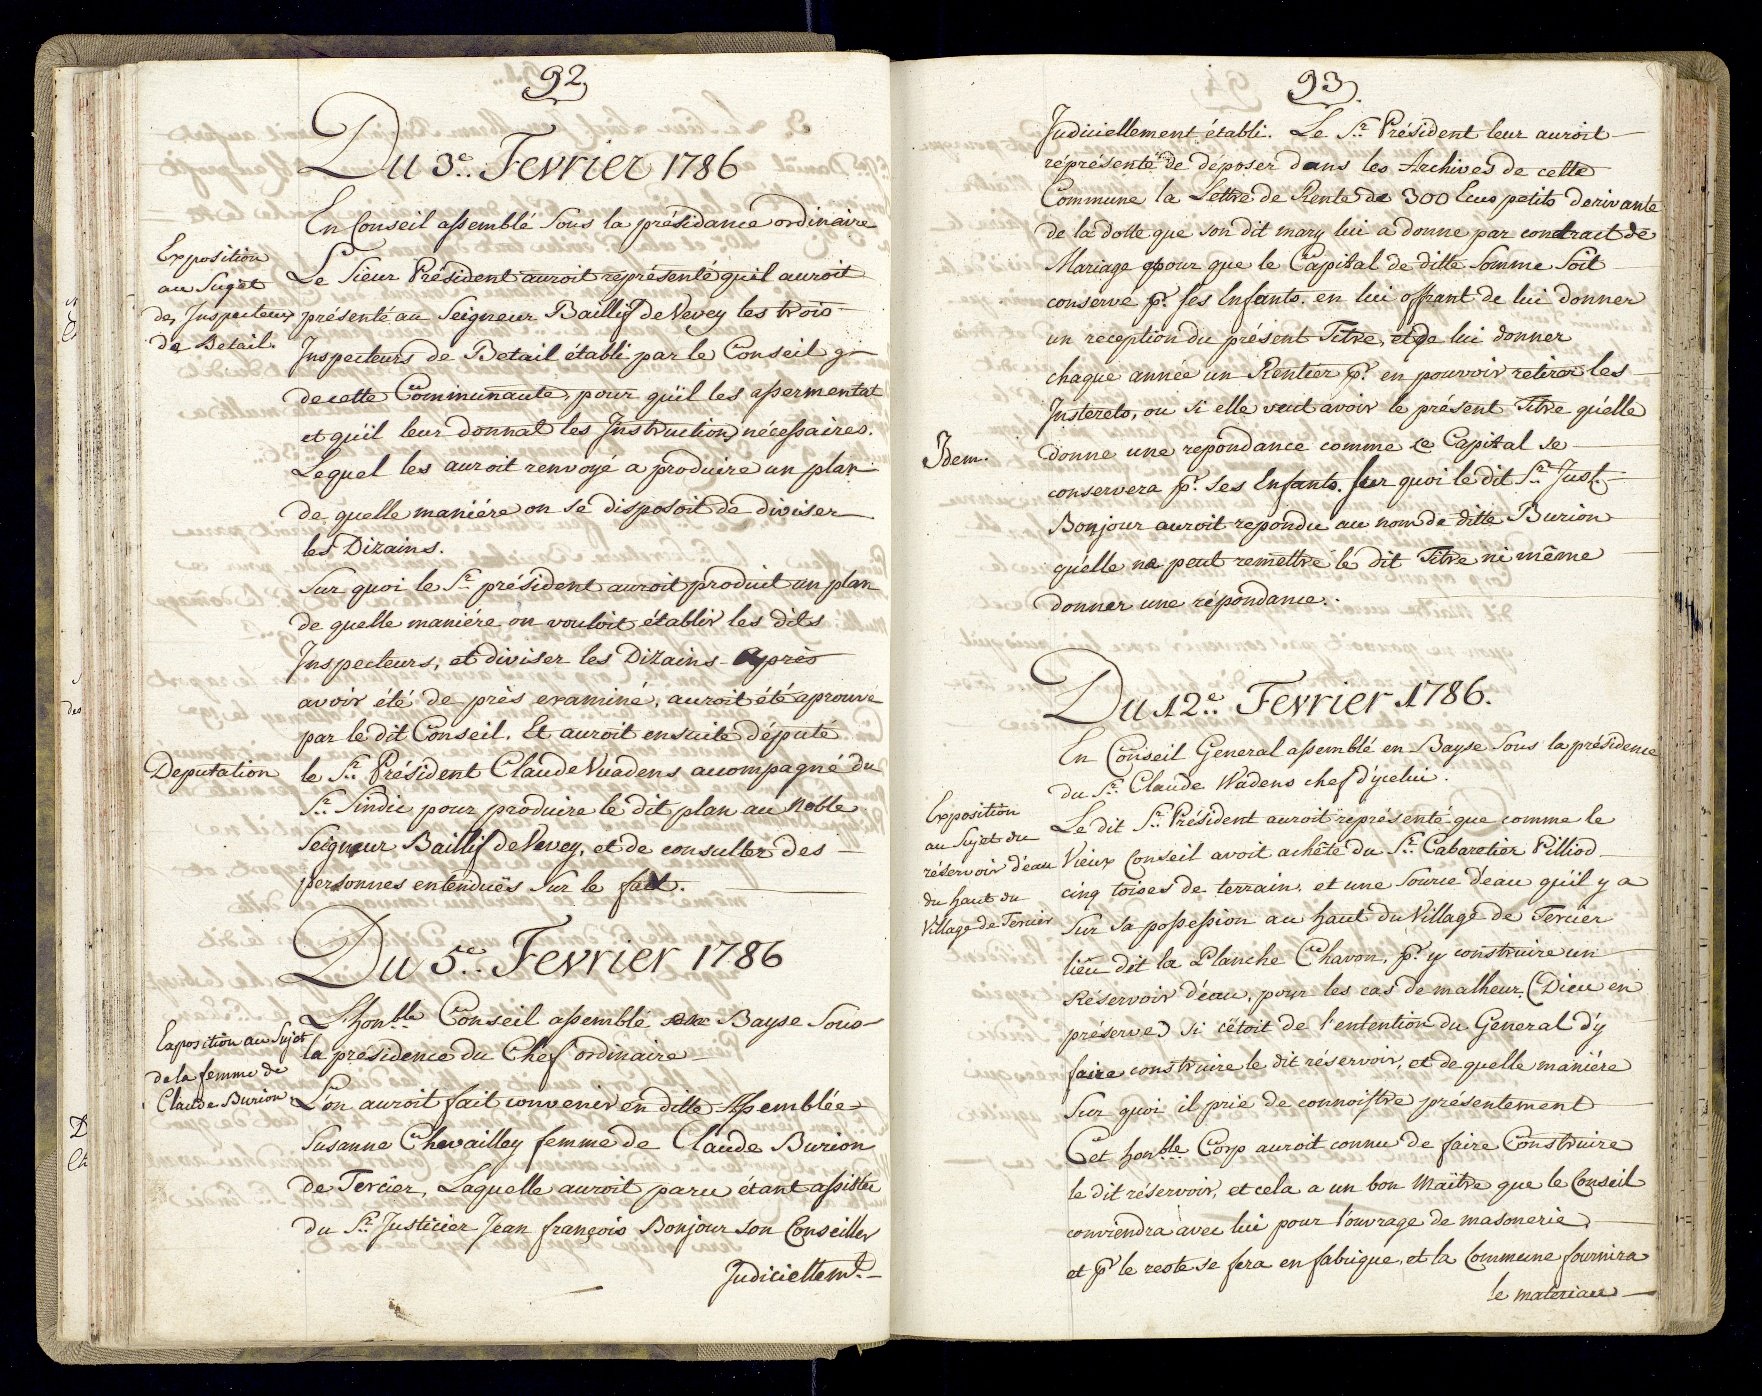 92
Du 3e. Fevrier 1786
En Conseil assemblé sous la présidance ordinaire
Exposition
au Sujet
des Inspecteurs
de Betail.
Le Sieur Président auroit représenté quil auroit
présenté au Seigneur Baillif de Vevey les trois
Inspecteurs de Betail établi par le Conseil g-
de cette Communauté, pour qu'il les assermentat
et qu'il leur donnat les Instructions nécessaires.
Lequel les auroit renvoyé a produire un plan
de quelle maniére on se disposoit de diviser
les Dizains.
Sur quoi le Sr. président auroit produit un plan
de quelle maniére on vouloit établir les dits
Inspecteurs, et diviser les Dizains. Après
avoir été de près examiné, auroit été aprouvé
par le dit Conseil. Et auroit ensuite député
Deputation
le Sr. Président Claude Vuadens accompagné du
Sr. Sindic pour produire le dit plan au Noble
Seigneur Baillif de Vevey, et de consulter des
personnes entenduës sur le fait.
Du 5e. Fevrier 1786
L'honble. Conseil assemblé Bayse Sous
la présidence du Chef ordinaire
Exposition au Sujet
de la femme de
Claude Burion
L'on auroit fait convenir en ditte Assemblée
Susanne Chevailley femme de Claude Burion
de Tercier, Laquelle auroit paru étant assistée
du Sr. Justicier Jean françois Bonjour son Conseiller
Judiciellemt.
93.
Judiciellement établi. Le Sr. Président leur auroit
réprésenté de déposer dans les Archives de cette
Commune la Lettre de Rente de 300 Ecus petits derivante
de la dotte que son dit mary lui a donne par contract de
Mariage pour que le Capital de ditte Somme Soit
conserve pr. ses Enfants. en lui offrant de lui donner
un reception du présent Titre, et de lui donner
chaque année un Rentier pr. en pouvoir retirer les
Interets, ou si elle veut avoir le présent Titre qu'elle
Idem.
donne une repondance comme ce Capital se
conservera pr. ses Enfants. Sur quoi le dit Sr. Just.
Bonjour auroit repondu au nom de ditte Burion
qu'elle ne peut remettre le dit Titre ni même
donner une répondance.
Du 12e. Fevrier 1786.
En Conseil General assemblé en Bayse Sous la présidence
du Sr. Claude Wadens chef d'ycelui.
Exposition
au Sujet du
réservoir d'eau
du haut du
Village de Tercier
Le dit Sr. Président auroit représenté que comme le
Vieux Conseil avoit achété du Sr. Cabaretier Pilliod
cinq toises de terrain, et une Source d'eau qu'il y a
Sur sa possession au haut du Village de Tercier
lieu dit la Planche Chavon, pr. y construire un
Réservoir d'eau, pour les cas de malheur, (Dieu en
préserve) si c'étoit de l'entention du General d'y
faire construire le dit réservoir, et de quelle maniére
Sur quoi il prie de connoistre présentement
Cet honble. Corp auroit connu de faire Construire
le dit réservoir, et cela a un bon Maître que le Conseil
conviendra avec lui pour l'ouvrage de masonerie,
et pr. le reste se fera en fabrique, et la Commune fournira
le materiau